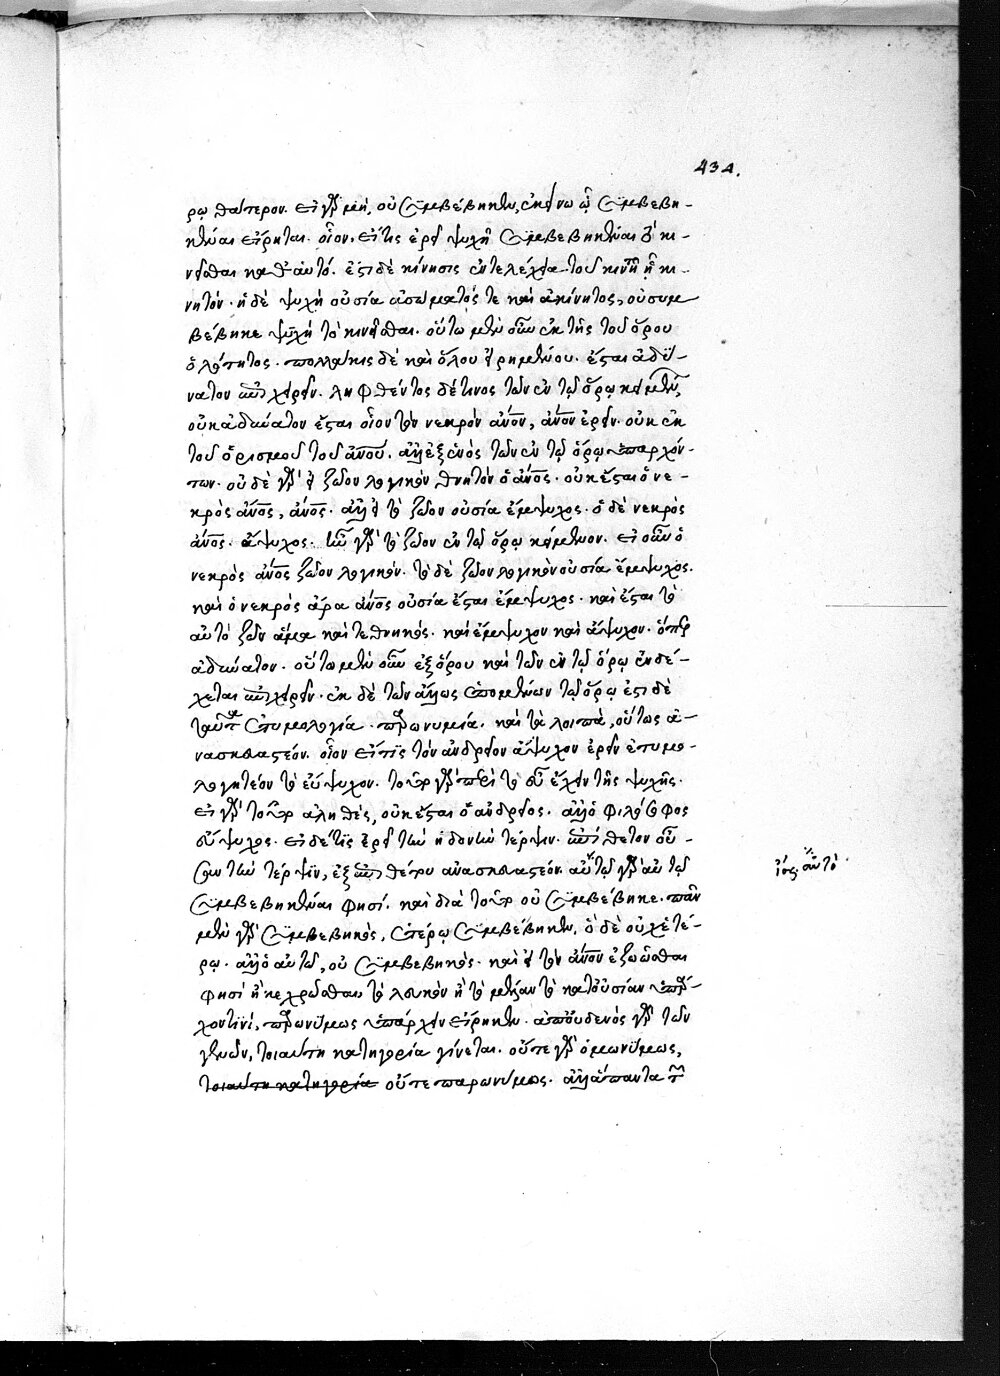 434.
ρῳ θάτερον. εἰ γὰρ μὴ, οὐ συμβέβηκεν, ἐκείνω ᾧ συμβεβη-
κέναι εἴρηται. οἷον, εἴ τις ἐρεῖ ψυχῇ συμβεβηκέναι τὸ κι-
νεῖσθαι καθ' αὑτό. ἔστι δὲ κίνησις ἐντελέχεια τοῦ κινητοῦ ᾗ κι-
νητόν. ἡ δὲ ψυχὴ οὐσία ἀσώματός τε καὶ ἀκίνητος, οὐ συμ
βέβηκε ψυχῇ τὸ κινεῖσθαι. οὕτω μὲν οὖν ἐκ τῆς τοῦ ὅρου
ὁλότητος. πολλάκις δὲ καὶ ὅλου εἰρημένου. ἔσται ἀδύ-
νατον ἐπιχειρεῖν. ληφθέντος δέ τινος τῶν ἐν τῷ ὅρῳ κειμένων,
οὐκ ἀδύνατον ἔσται οἷον τὸν νεκρὸν ἄνον, ἄνον ἐρεῖν. οὐκ ἐκ
τοῦ ὁρισμοῦ τοῦ ἀνου. ἀλλ' ἐξ ἑνὸς τῶν ἐν τῷ ὅρῳ ὑπαρχόν-
των. οὐδὲ γὰρ εἰ ζῶον λογικὸν θνητὸν ὁ ἄνος. οὐκ ἔσται ὁ νε-
κρὸς ἄνος, ἄνος. ἀλλ' εἰ τὸ ζῶον οὐσία ἔμψυχος. ὁ δὲ νεκρὸς
ἄνος. ἄψυχος. ἦν γὰρ τὸ ζῶον ἐν τῷ ὅρῳ κείμενον. εἰ οὖν ὁ
νεκρὸς ἄνος ζῶον λογικόν. τὸ δὲ ζῶον λογικὸν οὐσία ἔμψυχος.
καὶ ὁ νεκρὸς ἄρα ἄνος οὐσία ἔσται ἔμψυχος. καὶ ἔσται τὸ
αὐτὸ ζῶν ἅμα καὶ τεθνηκός. καὶ ἔμψυχον καὶ ἄψυχον. ὅπερ
ἀδύνατον. οὕτω μὲν οὖν ἐξ ὅρου καὶ τῶν ἐν τῷ ὅρῳ ἐνδέ-
χεται ἐπιχειρεῖν. ἐκ δὲ τῶν ἄλλως ἑπομένων τῷ ὅρῳ ἔστι δὲ
ταῦτα ἐτυμολογία. παρωνυμία. καὶ τὰ λοιπὰ, οὕτως ἀ-
νασκευαστέον. οἷον εἴ τις τὸν ἀνδρεῖον ἄψυχον ἐρεῖν ἐτυμο-
λογητέον τὸ εὔψυχον. τοῦτο γὰρ παρὰ τὸ εὖ ἔχειν τῆς ψυχῆς.
εἰ γὰρ τοῦτο ἀληθὲς, οὐκ ἔσται ὁ ἀνδρεῖος. ἀλλ' ὁ φιλόσοφος
εὔψυχος. εἰ δέ τις ἐρεῖ τὴν ἡδονὴν τέρψιν. ἐπίθετον οὖ-
σαν τὴν τέρψιν, ἐξ ἐπιθέτου ἀνασκευαστέον. αὐτῷ γὰρ αὐτῷ
συμβεβηκέναι φησί. καὶ διὰ τοῦτο οὐ συμβέβηκε. πᾶν
μὲν γὰρ συμβεβηκὸς, ἑτέρῳ συμβέβηκεν, ὁ δὲ οὐχ ἑτέ-
ρῳ. ἀλλ' ὁ αὐτῷ, οὐ συμβεβηκός. καὶ εἰ τὸν ἄνον ἐζωῶσθαι
φησὶ ἢ κεχρῶσθαι τὸ λευκὸν ἢ τὸ μέλαν τὸ κατ' οὐσίαν ὑπάρ-
χον τινί, παρωνύμως ὑπάρχειν εἴρηκεν. ἀπ' οὐδενὸς γὰρ τῶν
γενῶν, τοιαύτη κατηγορία γίνεται. οὔτε γὰρ ὁμωνύμως,
τοιαύτη κατηγορία οὔτε παρωνύμως. ἀλλ' ἅπαντα τὰ
ἴσως αὐτὸ